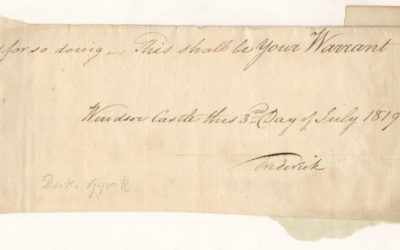 for so doing, This shall be Your Warrant
Windsor Castle this 3rd Day of July 1819
Frederick
Duke of York